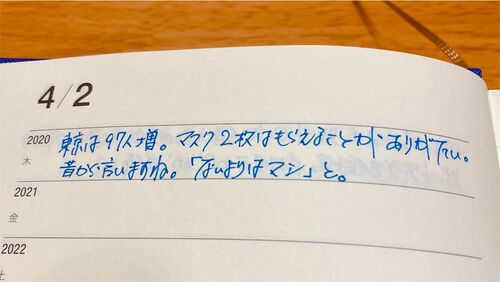 4/2
2020 東京は97人増。マスク2枚はもらえることがありがたい。
木 昔から言いますね。「ないよりはマシ」と。
2021
金
2022
土